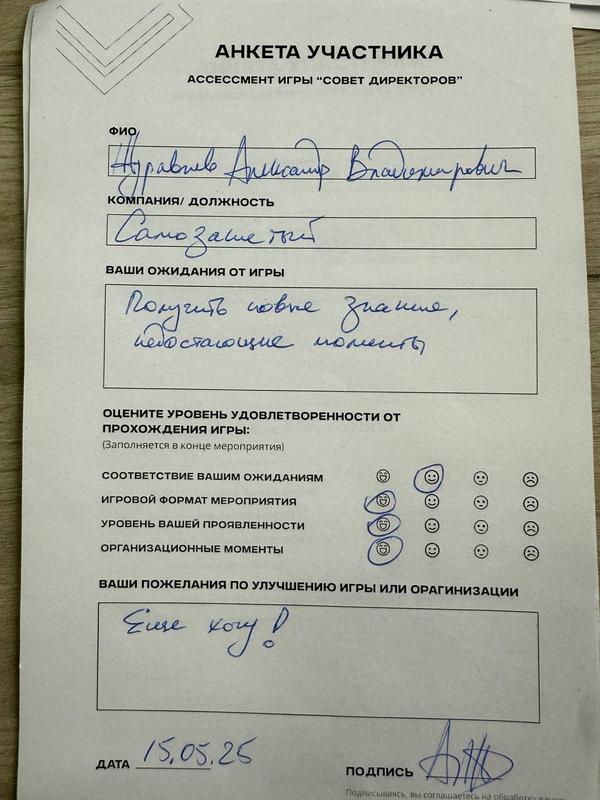 АНКЕТА УЧАСТНИКА
АССЕССМЕНТ ИГРЫ “СОВЕТ ДИРЕКТОРОВ”
ФИО
Журавлев Александр Владимирович
КОМПАНИЯ/ ДОЛЖНОСТЬ
Самозанятый
ВАШИ ОЖИДАНИЯ ОТ ИГРЫ
Получить новые знания,
недостающие моменты
ОЦЕНИТЕ УРОВЕНЬ УДОВЛЕТВОРЕННОСТИ ОТ
ПРОХОЖДЕНИЯ ИГРЫ:
(Заполняется в конце мероприятия)
СООТВЕТСТВИЕ ВАШИМ ОЖИДАНИЯМ
ИГРОВОЙ ФОРМАТ МЕРОПРИЯТИЯ
УРОВЕНЬ ВАШЕЙ ПРОЯВЛЕННОСТИ
ОРГАНИЗАЦИОННЫЕ МОМЕНТЫ
ВАШИ ПОЖЕЛАНИЯ ПО УЛУЧШЕНИЮ ИГРЫ ИЛИ ОРАГИНИЗАЦИИ
Еще хочу!
ДАТА 15.05.25
ПОДПИСЬ
Подписываясь, вы соглашаетесь на обработку